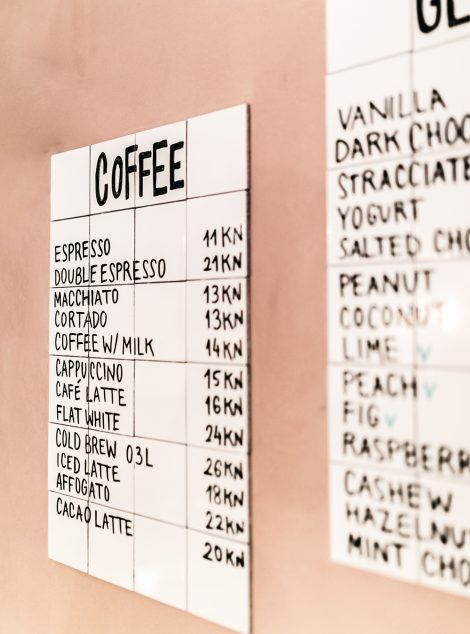 COFFEE
ESPRESSO 11KN
DOUBLE ESPRESSO 21KN
MACCHIATO 13KN
CORTADO 13KN
COFFEE W/ MILK 14KN
CAPPUCCINO 15KN
CAFÉ LATTE 16KN
FLAT WHITE 24KN
COLD BREW 03L 26KN
ICED LATTE 18KN
AFFOGATO 22KN
CACAO LATTE 20KN
GE
VANILLA
DARK CHOC
STRACCIATE
YOGURT
SALTED CHO
PEANUT
COCONUT
LIME
PEACH
FIG
RASPBERR
CASHEW
HAZELNU
MINT CHO